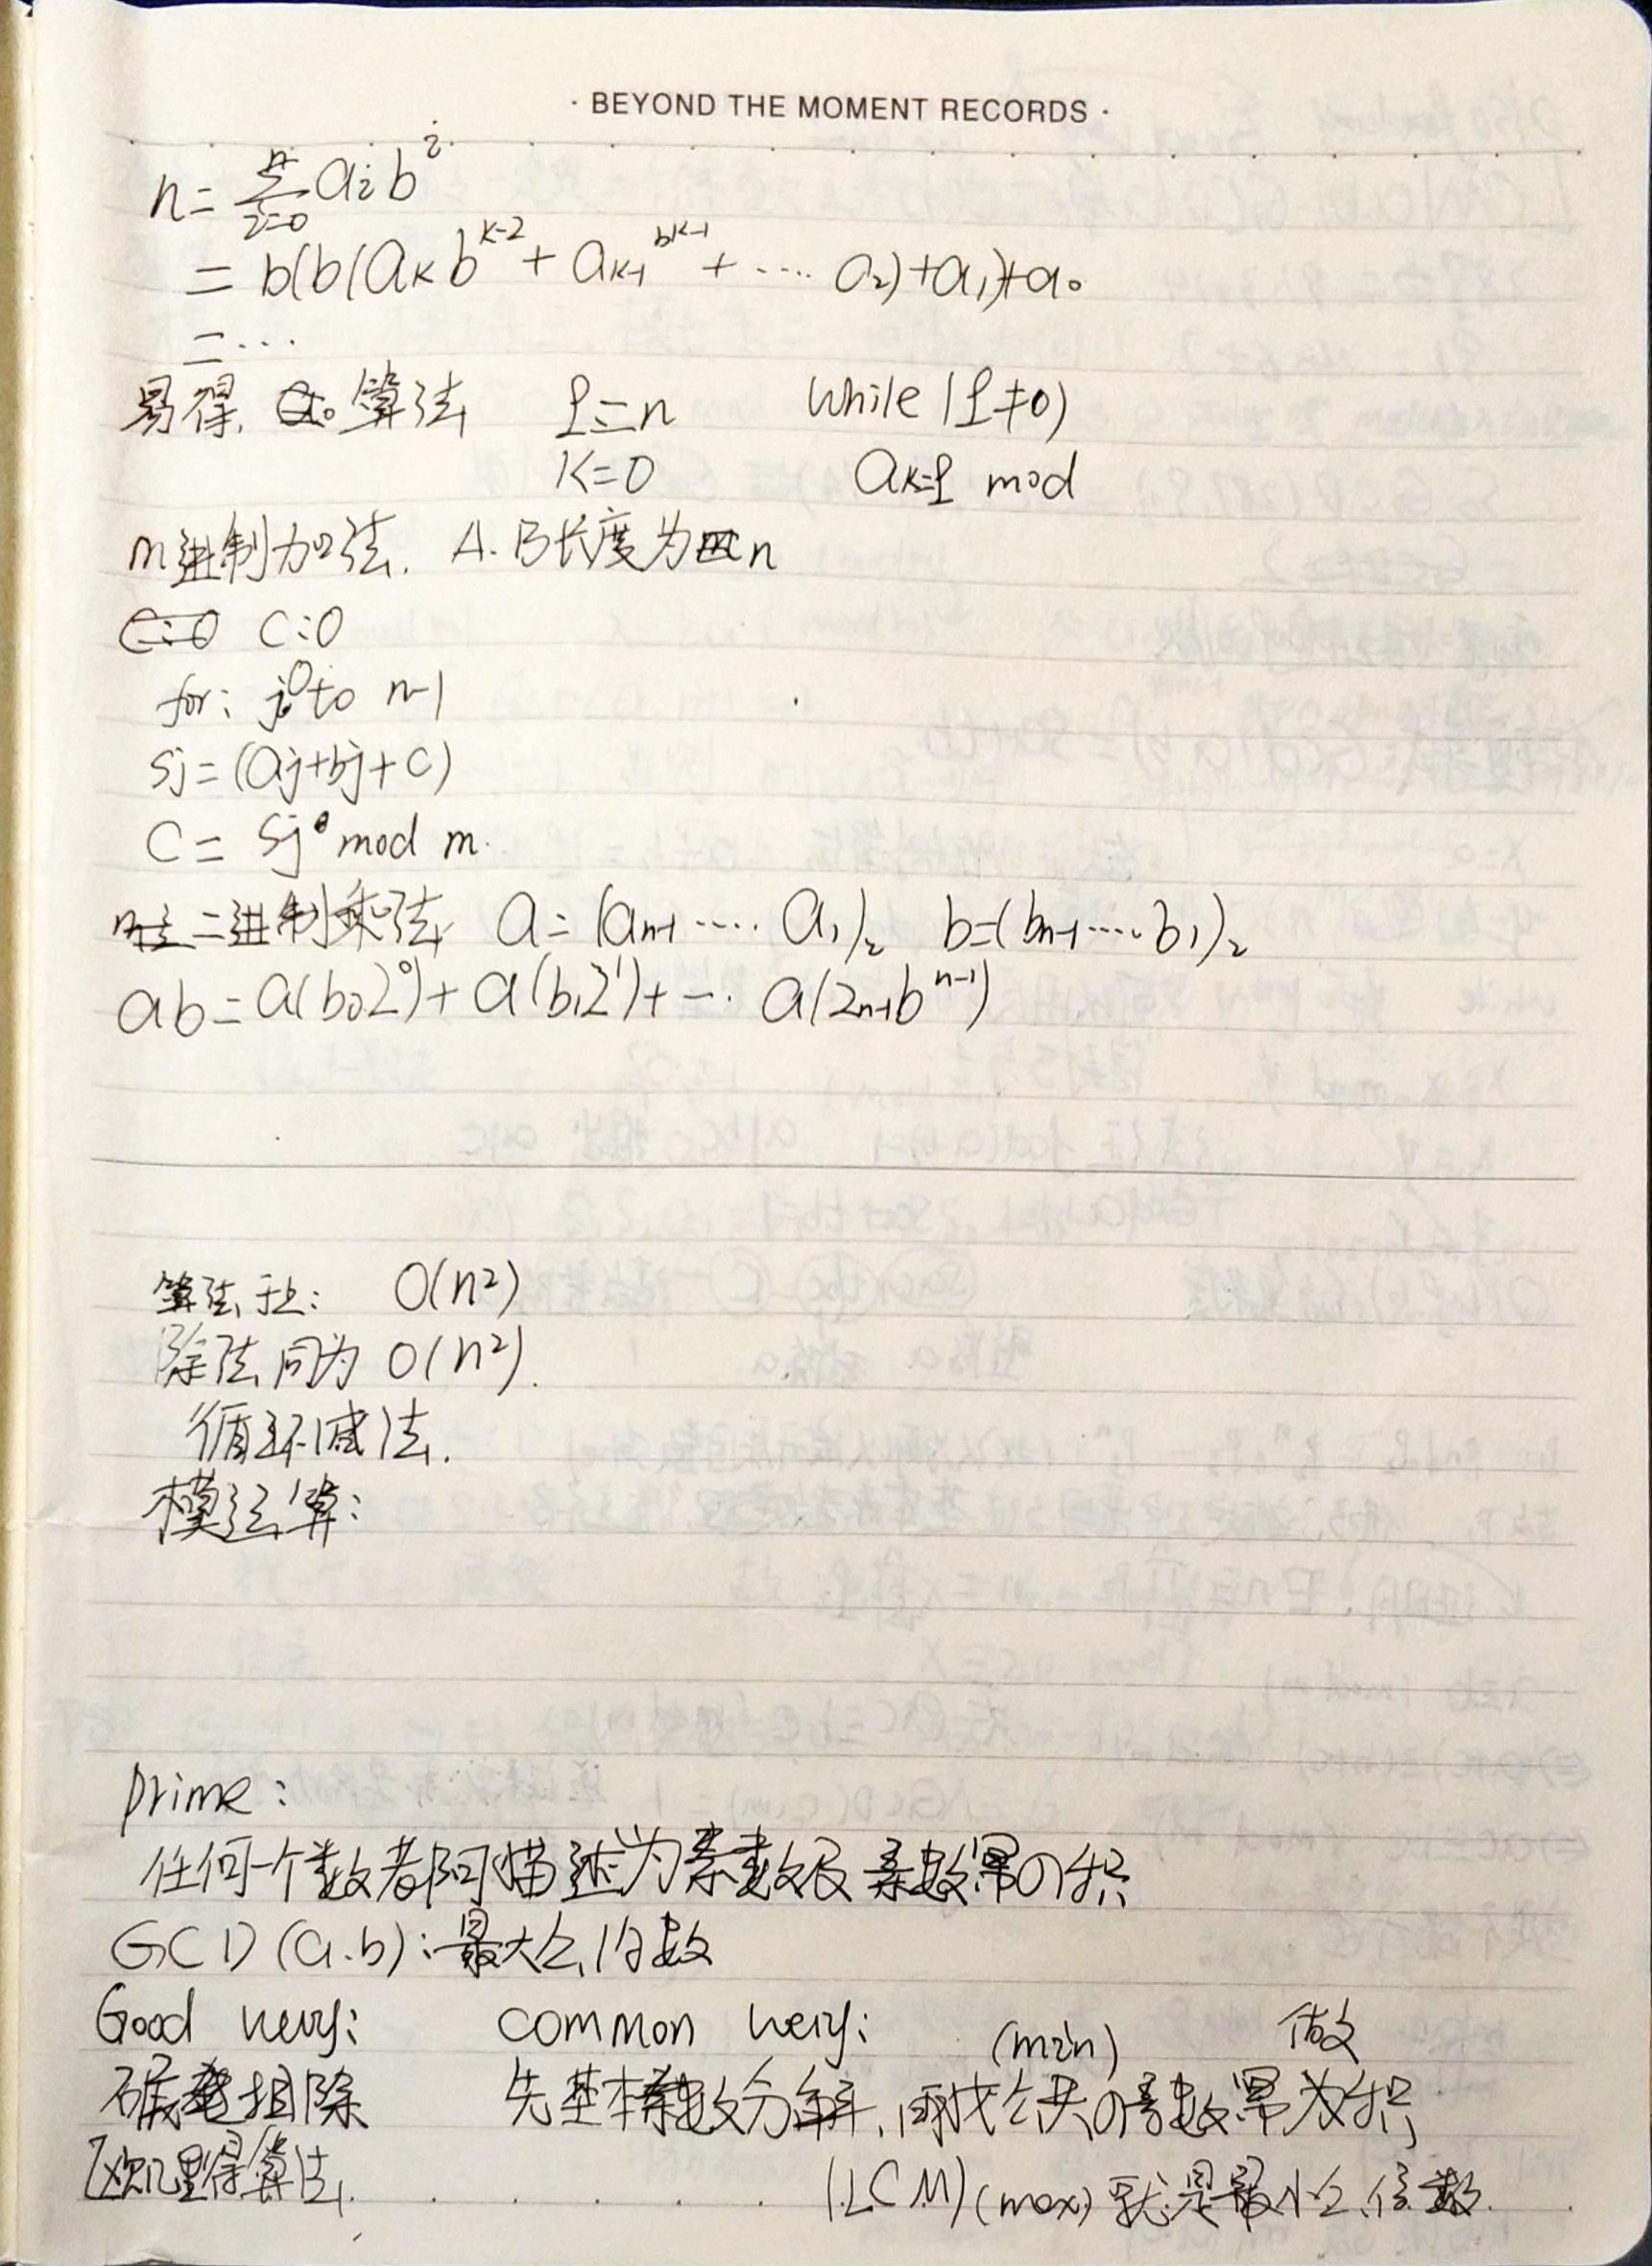 · BEYOND THE MOMENT RECORDS ·
n = Σ_{i=0}^{n} aᵢ b^i
= b(b(a_K b^{K-2} + a_{K-1} b^{K-1} + .... a₂)+a₁)+a₀
= ...
易得. a₀ 算法 q=n While (q≠0)
K=0 a_K=q mod
m进制加法. A.B长度为 n
C:0 C:0
for: j 0 to n-1
Sj=(aj+bj+C)
C = Sj mod m.
二进制乘法 a=(a_{n-1} .... a₁)₂ b=(b_{n-1} .... b₁)₂
ab=a(b₀2⁰)+a(b₁2¹)+ ... a(2_{n-1}b^{n-1})
算法 O(n²)
除法同为 O(n²).
循环减法.
模运算:
prime:
任何一个数都可描述为素数及素数幂の积
GCD(a.b):最大公约数
Good common (min) 做
排除 先基本素数分解, 再找公共の素数幂为积
欧几里得算法. (LCM)(max)就是最小公倍数.